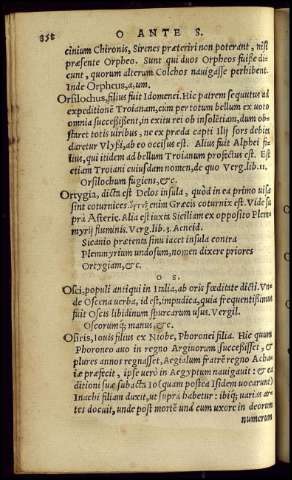 858 O ANTE S.
cinium Chironis, Sirenes præteriri non poterant, nisi
præsente Orpheo. Sunt qui duos Orpheos fuisse di
cunt, quorum alterum Colchos nauigasse perhibent.
Inde Orpheus,a,um.
Orsilochus, filius fuit Idomenei. Hic patrem sequutus ad
expeditionē Troianam, cum per totum bellum ex uoto
omnia successissent, in exitu rei ob insolētiam, dum ob-
staret totis uiribus, ne ex præda capti Ilij sors debita
daretur Vlyssi, ab eo occisus est. Alius fuit Alphei fi-
lius, qui itidem ad bellum Troianum profectus est. Est
etiam Troiani cuiusdam nomen, de quo Verg.lib.11.
Orsilochum fugiens, &c.
Ortygia, dicta est Delos insula, quòd in ea primo uisæ
sint coturnices. enim Græcis coturnix est. Vide su
prà Asterie. Alia est iuxta Siciliam ex opposito Plem-
myrij fluminis. Verg.lib.3. Aeneid.
Sicanio prætenta sinu iacet insula contra
Plemmyrium undosum, nomen dixere priores
Ortygiam, &c.
O S.
Osci, populi antiqui in Italia, ab oris fœditate dicti. Vn
de Oscena uerba, id est, impudica, quia frequentissimus
fuit Oscis libidinum spurcarum usus. Vergil.
Oscorumq; manus, &c.
Osiris, Iouis filius ex Niobe, Phoronei filia. Hic quum
Phoroneo auo in regno Argiuorum successisset, &
plures annos regnasset, Aegialum fratrē regno Acha-
iæ præfecit, ipse uerò in Aegyptum nauigauit: & ea
ditioni suæ subacta Io (quam postea Isidem uocarunt)
Inachi filiam duxit, ut suprà habetur: ibiq; uarias ar-
tes docuit, unde post mortē unà cum uxore in deorum
numerum